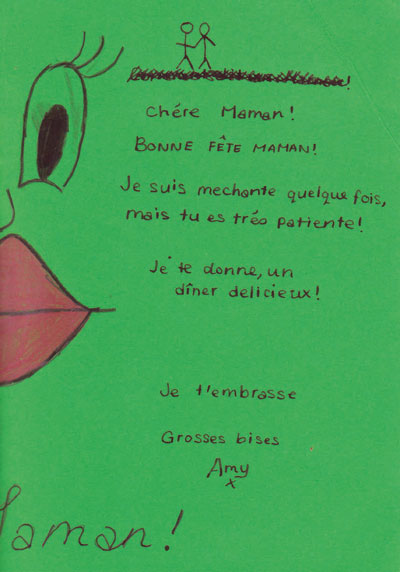 Chére Maman!
BONNE FÊTE MAMAN!
Je suis mechante quelque fois,
mais tu es trés patiente!
Je te donne, un
dîner delicieux!
Je t'embrasse
Grosses bises
Amy
x
Maman!